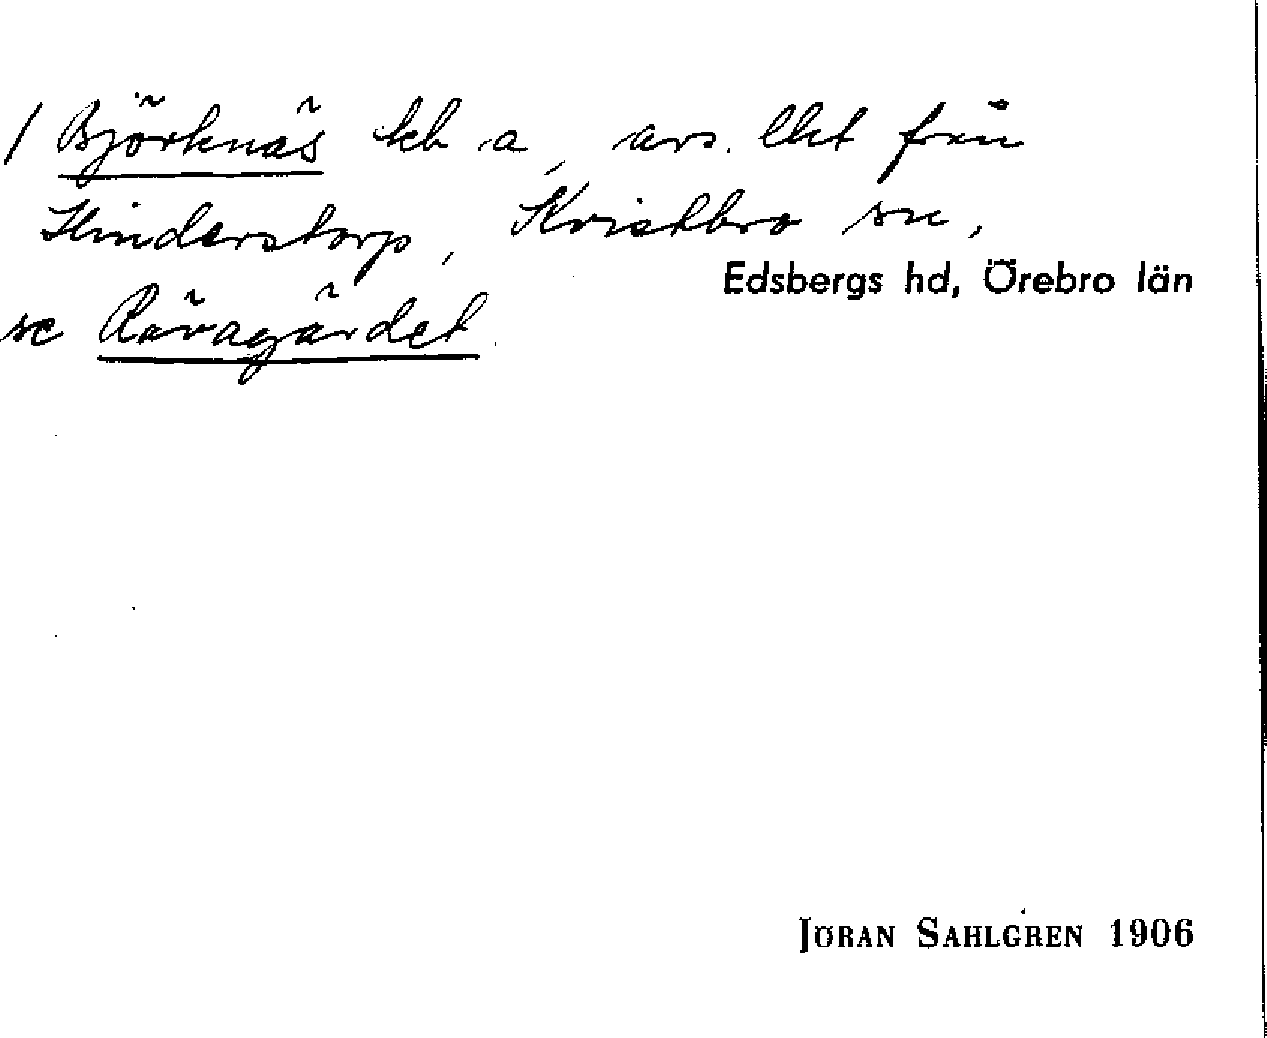 / Björknäs tcb a, avs. lht från
Hinderstorp, Kvistbro sn,
Edsbergs hd, Örebro län
se Rävagärdet.
JÖRAN SAHLGREN 1906